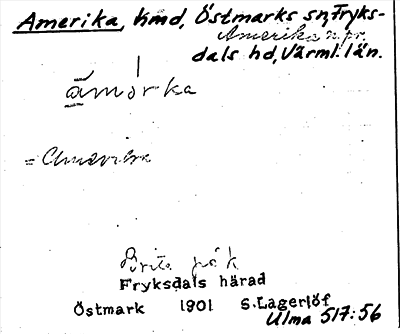 Amerika, hmd, Östmarks sn, Fryks-
Amerika n. pr.
dals hd, Värml. län.
ämorka
= Amerika
Fryksdals härad
Östmark 1901 S.Lagerlöf
Ulma 517:56